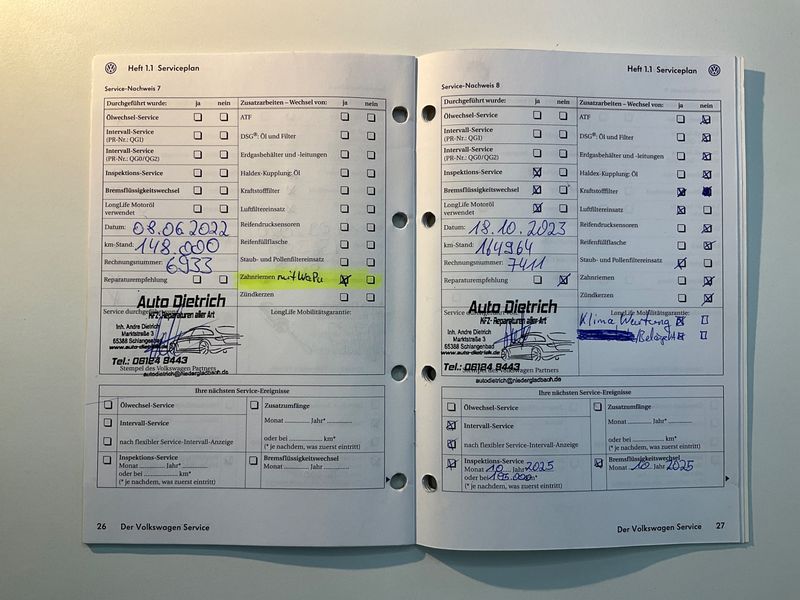 Heft 1.1 Serviceplan
Service-Nachweis 7
Durchgeführt wurde: ja nein
Ölwechsel-Service
Intervall-Service
(PR-Nr.: QG1)
Intervall-Service
(PR-Nr.: QG0/QG2)
Inspektions-Service
Bremsflüssigkeitswechsel
LongLife Motoröl
verwendet
Datum: 08.06.2022
km-Stand: 148.000
Rechnungsnummer: 6933
Reparaturempfehlung
Zusatzarbeiten – Wechsel von: ja nein
ATF
DSG®: Öl und Filter
Erdgasbehälter und -leitungen
Haldex-Kupplung: Öl
Kraftstofffilter
Luftfiltereinsatz
Reifendrucksensoren
Reifenfüllflasche
Staub- und Pollenfiltereinsatz
Zahnriemen mit WaPu
Zündkerzen
Service durchgeführt
Auto Dietrich
KFZ-Reparaturen aller Art
Inh. Andre Dietrich
Marktstraße 3
65388 Schlangenbad
www.auto-dietrich.de
Tel.: 06124 9443
Stempel des Volkswagen Partners
autodietrich@niedergladbach.de
LongLife Mobilitätsgarantie:
Ihre nächsten Service-Ereignisse
Ölwechsel-Service
Intervall-Service
nach flexibler Service-Intervall-Anzeige
Inspektions-Service
Monat ............ Jahr* ............
oder bei ............ km*
(* je nachdem, was zuerst eintritt)
Zusatzumfänge
Monat ............ Jahr* ............
oder bei ............ km*
(* je nachdem, was zuerst eintritt)
Bremsflüssigkeitswechsel
Monat ............ Jahr ............
26 Der Volkswagen Service
Heft 1.1 Serviceplan
Service-Nachweis 8
Durchgeführt wurde: ja nein
Ölwechsel-Service
Intervall-Service
(PR-Nr.: QG1)
Intervall-Service
(PR-Nr.: QG0/QG2)
Inspektions-Service
Bremsflüssigkeitswechsel
LongLife Motoröl
verwendet
Datum: 18.10.2023
km-Stand: 164964
Rechnungsnummer: 7411
Reparaturempfehlung
Zusatzarbeiten – Wechsel von: ja nein
ATF
DSG®: Öl und Filter
Erdgasbehälter und -leitungen
Haldex-Kupplung: Öl
Kraftstofffilter
Luftfiltereinsatz
Reifendrucksensoren
Reifenfüllflasche
Staub- und Pollenfiltereinsatz
Zahnriemen
Zündkerzen
Service
Auto Dietrich
KFZ-Reparaturen aller Art
Inh. Andre Dietrich
Marktstraße 3
65388 Schlangenbad
www.auto-dietrich.de
Tel.: 06124 9443
Stempel des Volkswagen Partners
autodietrich@niedergladbach.de
LongLife Mobilitätsgarantie:
Klima Wartung
Ihre nächsten Service-Ereignisse
Ölwechsel-Service
Intervall-Service
nach flexibler Service-Intervall-Anzeige
Inspektions-Service
Monat 10 Jahr 2025
oder bei 195.000 km*
(* je nachdem, was zuerst eintritt)
Zusatzumfänge
Monat ............ Jahr* ............
oder bei ............ km*
(* je nachdem, was zuerst eintritt)
Bremsflüssigkeitswechsel
Monat 10 Jahr 2025
Der Volkswagen Service 27